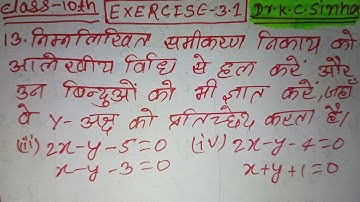 Class-10th EXERCISE-3.1 Dr.K.C.Sinha
13. निम्नलिखित समीकरण निकाय को
आलेखीय विधि से हल करें और
उन बिन्दुओं को भी ज्ञात करें, जहाँ
वे Y-अक्ष को प्रतिच्छेद करता है।
(iii) 2x-y-5=0 (iv) 2x-y-4=0
x-y-3=0 x+y+1=0